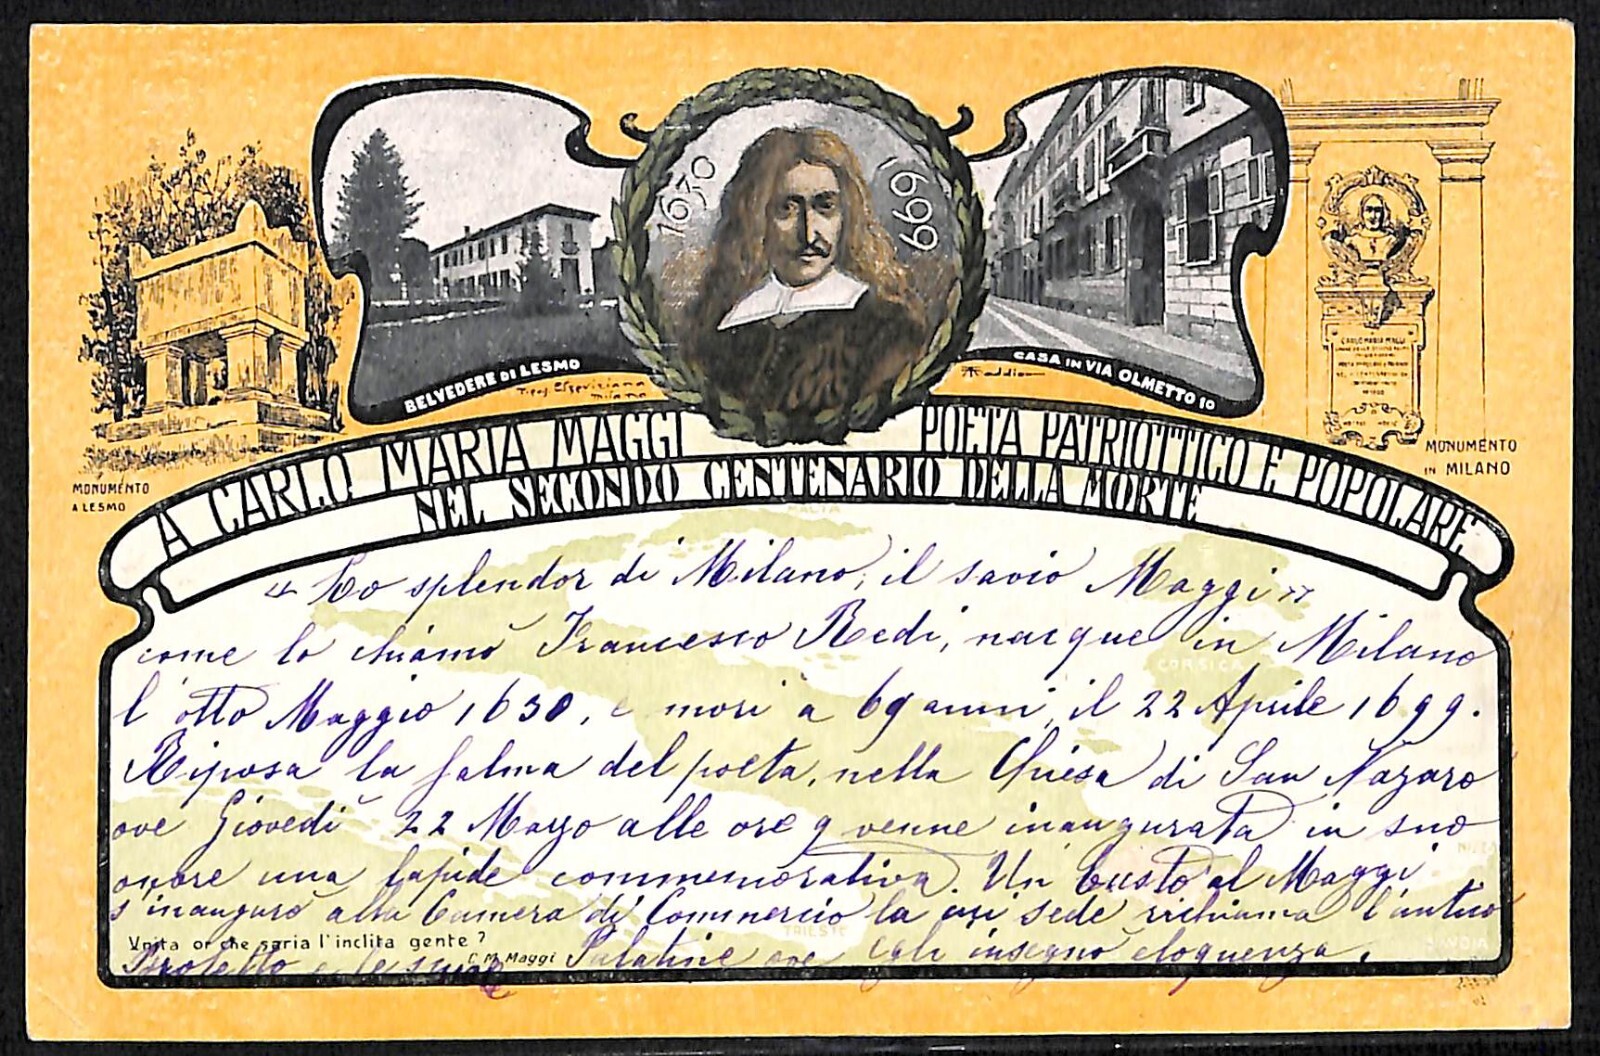 1630 1699
BELVEDERE DI LESMO
Tipog. Elzeviriana
Milano
CASA IN VIA OLMETTO 10
MONUMENTO
A LESMO
CARLO MARIA MAGGI
MONUMENTO
IN MILANO
A CARLO MARIA MAGGI POETA PATRIOTTICO E POPOLARE
NEL SECONDO CENTENARIO DELLA MORTE
MALTA
« Lo splendor di Milano, il savio Maggi »
come lo chiamò Francesco Redi, nacque in Milano
CORSICA
l'otto Maggio 1630, e morì a 69 anni, il 22 Aprile 1699.
Riposa la salma del poeta, nella Chiesa di San Nazaro
ove Giovedì 22 Marzo alle ore 9 venne inaugurata in suo
NIZZA
onore una lapide commemorativa. Un busto al Maggi
s'inaugurò alla Camera di Commercio la cui sede richiama l'antico
TRIESTE
SAVOIA
Unita or che saria l'inclita gente?
C. M. Maggi
Broletto e le scuole Palatine ove egli insegnò eloquenza.